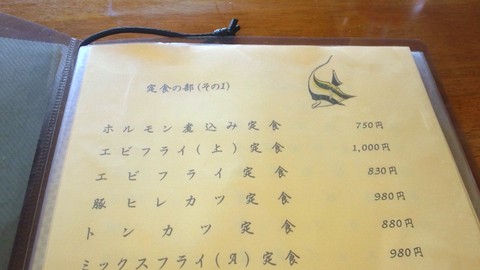 定食の部(その1)
ホルモン煮込み定食 750円
エビフライ(上)定食 1,000円
エビフライ定食 830円
豚ヒレカツ定食 980円
トンカツ定食 880円
ミックスフライ(A)定食 980円